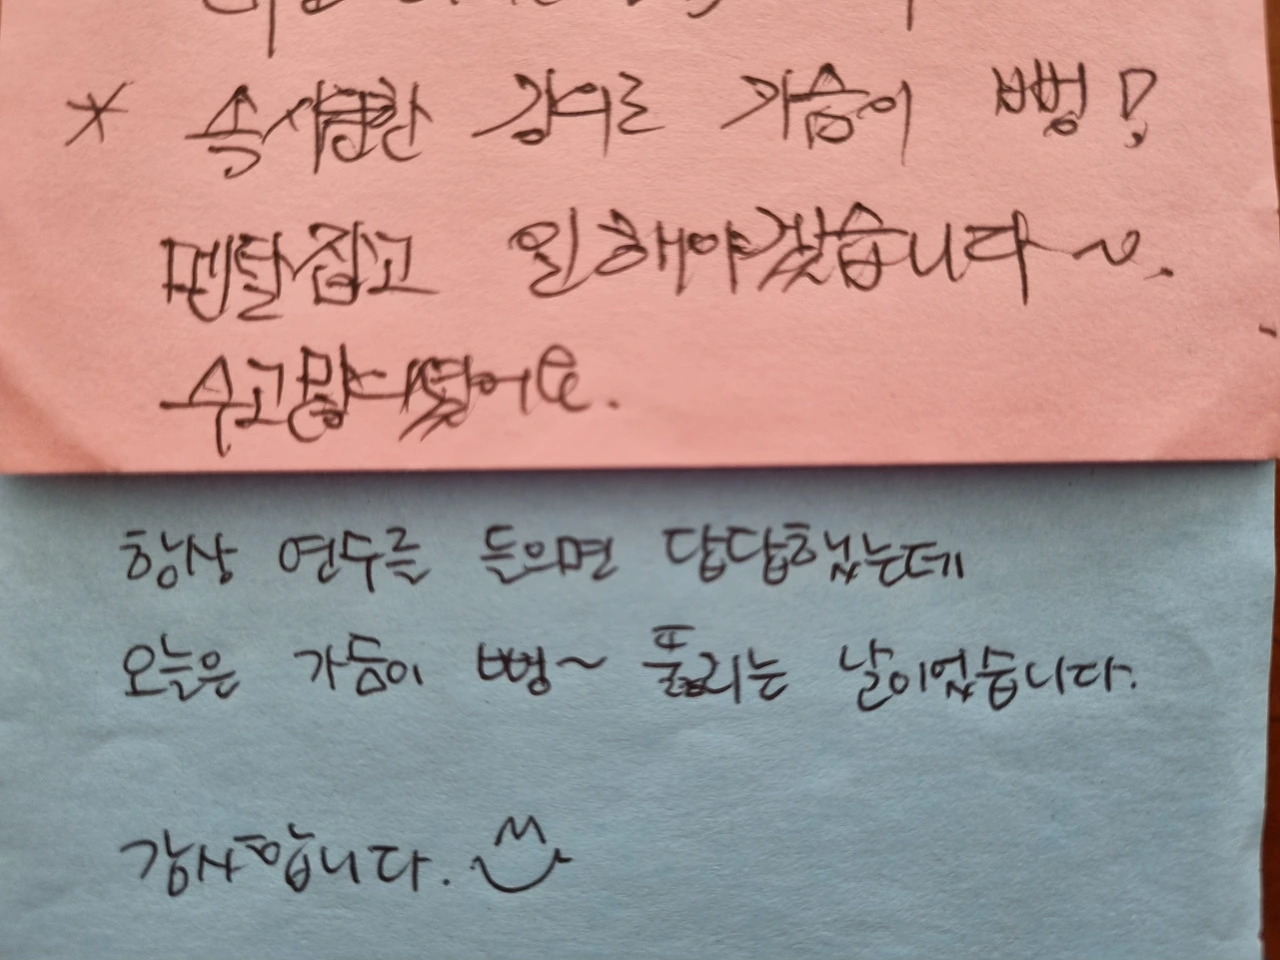 * 속시원한 강의로 가슴이 뻥!
멘탈잡고 일해야겠습니다~.
수고많으셨어요.
항상 연수를 들으면 답답했는데
오늘은 가슴이 뻥~ 풀리는 날이었습니다.
감사합니다.